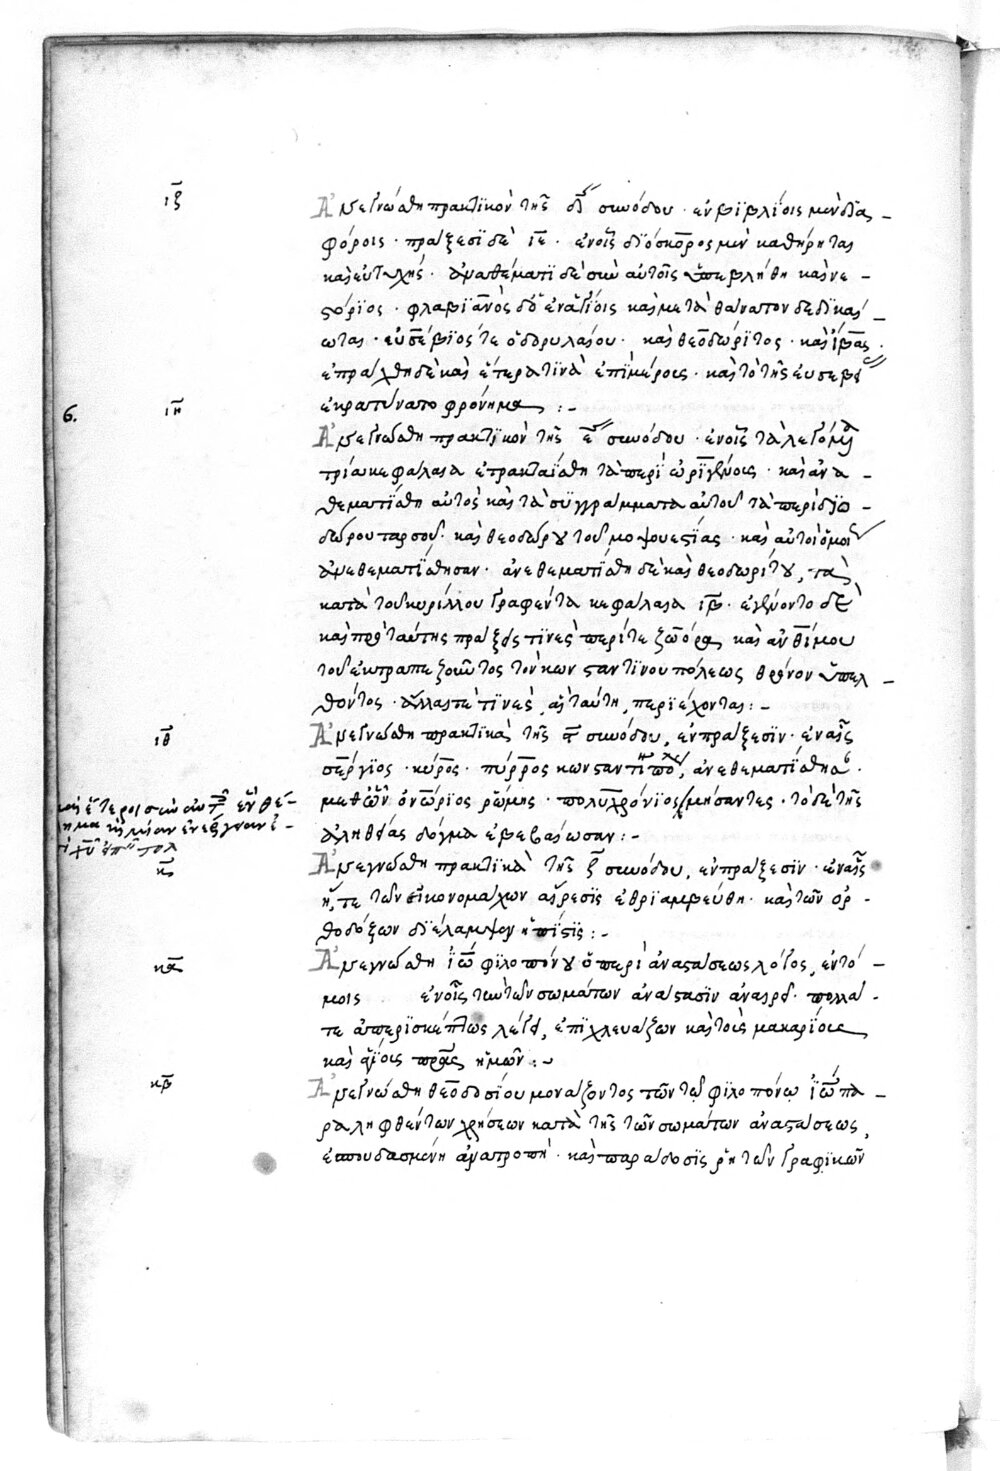 ιζ
Ἀνεγνώσθη πρακτικὸν τῆς δ΄ συνόδου · ἐν βιβλίοις μὲν δια-
φόροις · πράξεσι δὲ ιε · ἐν οἷς διόσκορος μὲν καθήρηται
καὶ εὐτυχής · ἀναθέματι δὲ σὺν αὐτοῖς ὑπεβλήθη καὶ νε-
στόριος · φλαβιανὸς δὲ καὶ μετὰ θάνατον δεδικαί-
ωται · εὐσέβιός τε ὁ δορυλαίου · καὶ θεοδώριτος · καὶ ἴβας ·
ἐπράχθη δὲ καὶ ἕτερά τινα ἐπὶ μέρους · καὶ τὸ τῆς εὐσεβεί
ἐκρατύνατο φρόνημα :-
6.
ιη
Ἀνεγνώσθη πρακτικὸν τῆς ε΄ συνόδου · ἐν οἷς τὰ λεγόμενα
τρία κεφάλαια ἐτρακταΐσθη τὰ περὶ ὠριγένους · καὶ ἀνα-
θεματίσθη αὐτὸς καὶ τὰ συγγράμματα αὐτοῦ τὰ περὶ διο-
δώρου ταρσοῦ · καὶ θεοδώρου τοῦ μοψουεστίας · καὶ αὐτοὶ ὁμοί
ἀνεθεματίσθησαν · ἀνεθεματίσθη δὲ καὶ θεοδωρίτου, τὰ
κατὰ τοῦ κυρίλλου γραφέντα κεφάλαια ιβ · ἐγένοντο δὲ
καὶ πρὸ ταύτης πράξεις τινὲς περί τε ζωόρα καὶ ἀνθίμου
τοῦ ἐκ τραπεζοῦντος τὸν κωνσταντίνου πόλεως θρόνον ὑπελ-
θόντος · ἄλλαι τέ τινες, ἃς ταύτη, περιέχονται :-
ιθ
Ἀνεγνώσθη πρακτικὰ τῆς ϛ συνόδου, ἐν πράξεσιν · ἐν αἷς
σέργιος · κύρος · πύρρος κωνσταντινουπόλεως, ἀνεθεματίσθησαν ·
μεθ' ὧν ὀνώριος ῥώμης · πολυχρόνιος · τὸ δὲ τῆς
ἀληθείας δόγμα ἐβεβαίωσαν :-
καὶ ἕτεροι σὺν αὐτ
κ
Ἀνεγνώσθη πρακτικὰ τῆς ζ συνόδου, ἐν πράξεσιν · ἐν αἷς
ἥ, τε τῶν εἰκονομάχων αἵρεσις ἐθριαμβεύθη · καὶ τῶν ὀρ-
θοδόξων διέλαμψεν ἡ πίστις :-
κα
Ἀνεγνώσθη ἰω φιλοπόνου ὁ περὶ ἀναστάσεως λόγος, ἐν τό-
μοις ἐν οἷς τὴν τῶν σωμάτων ἀνάστασιν ἀναιρεῖ · πολλά-
τε ἀπερισκέπτως λέγει, ἐπιχλευάζων καὶ τοὺς μακαρίους
καὶ ἁγίους πρας ἡμῶν :-
κβ
Ἀνεγνώσθη θεοδοσίου μονάζοντος τῶν τῷ φιλοπόνῳ ἰω πα-
ραληφθέντων χρήσεων κατὰ τῆς τῶν σωμάτων ἀναστάσεως,
ἐσπουδασμένη ἀνατροπή · καὶ παράδοσις ῥητῶν γραφικῶν